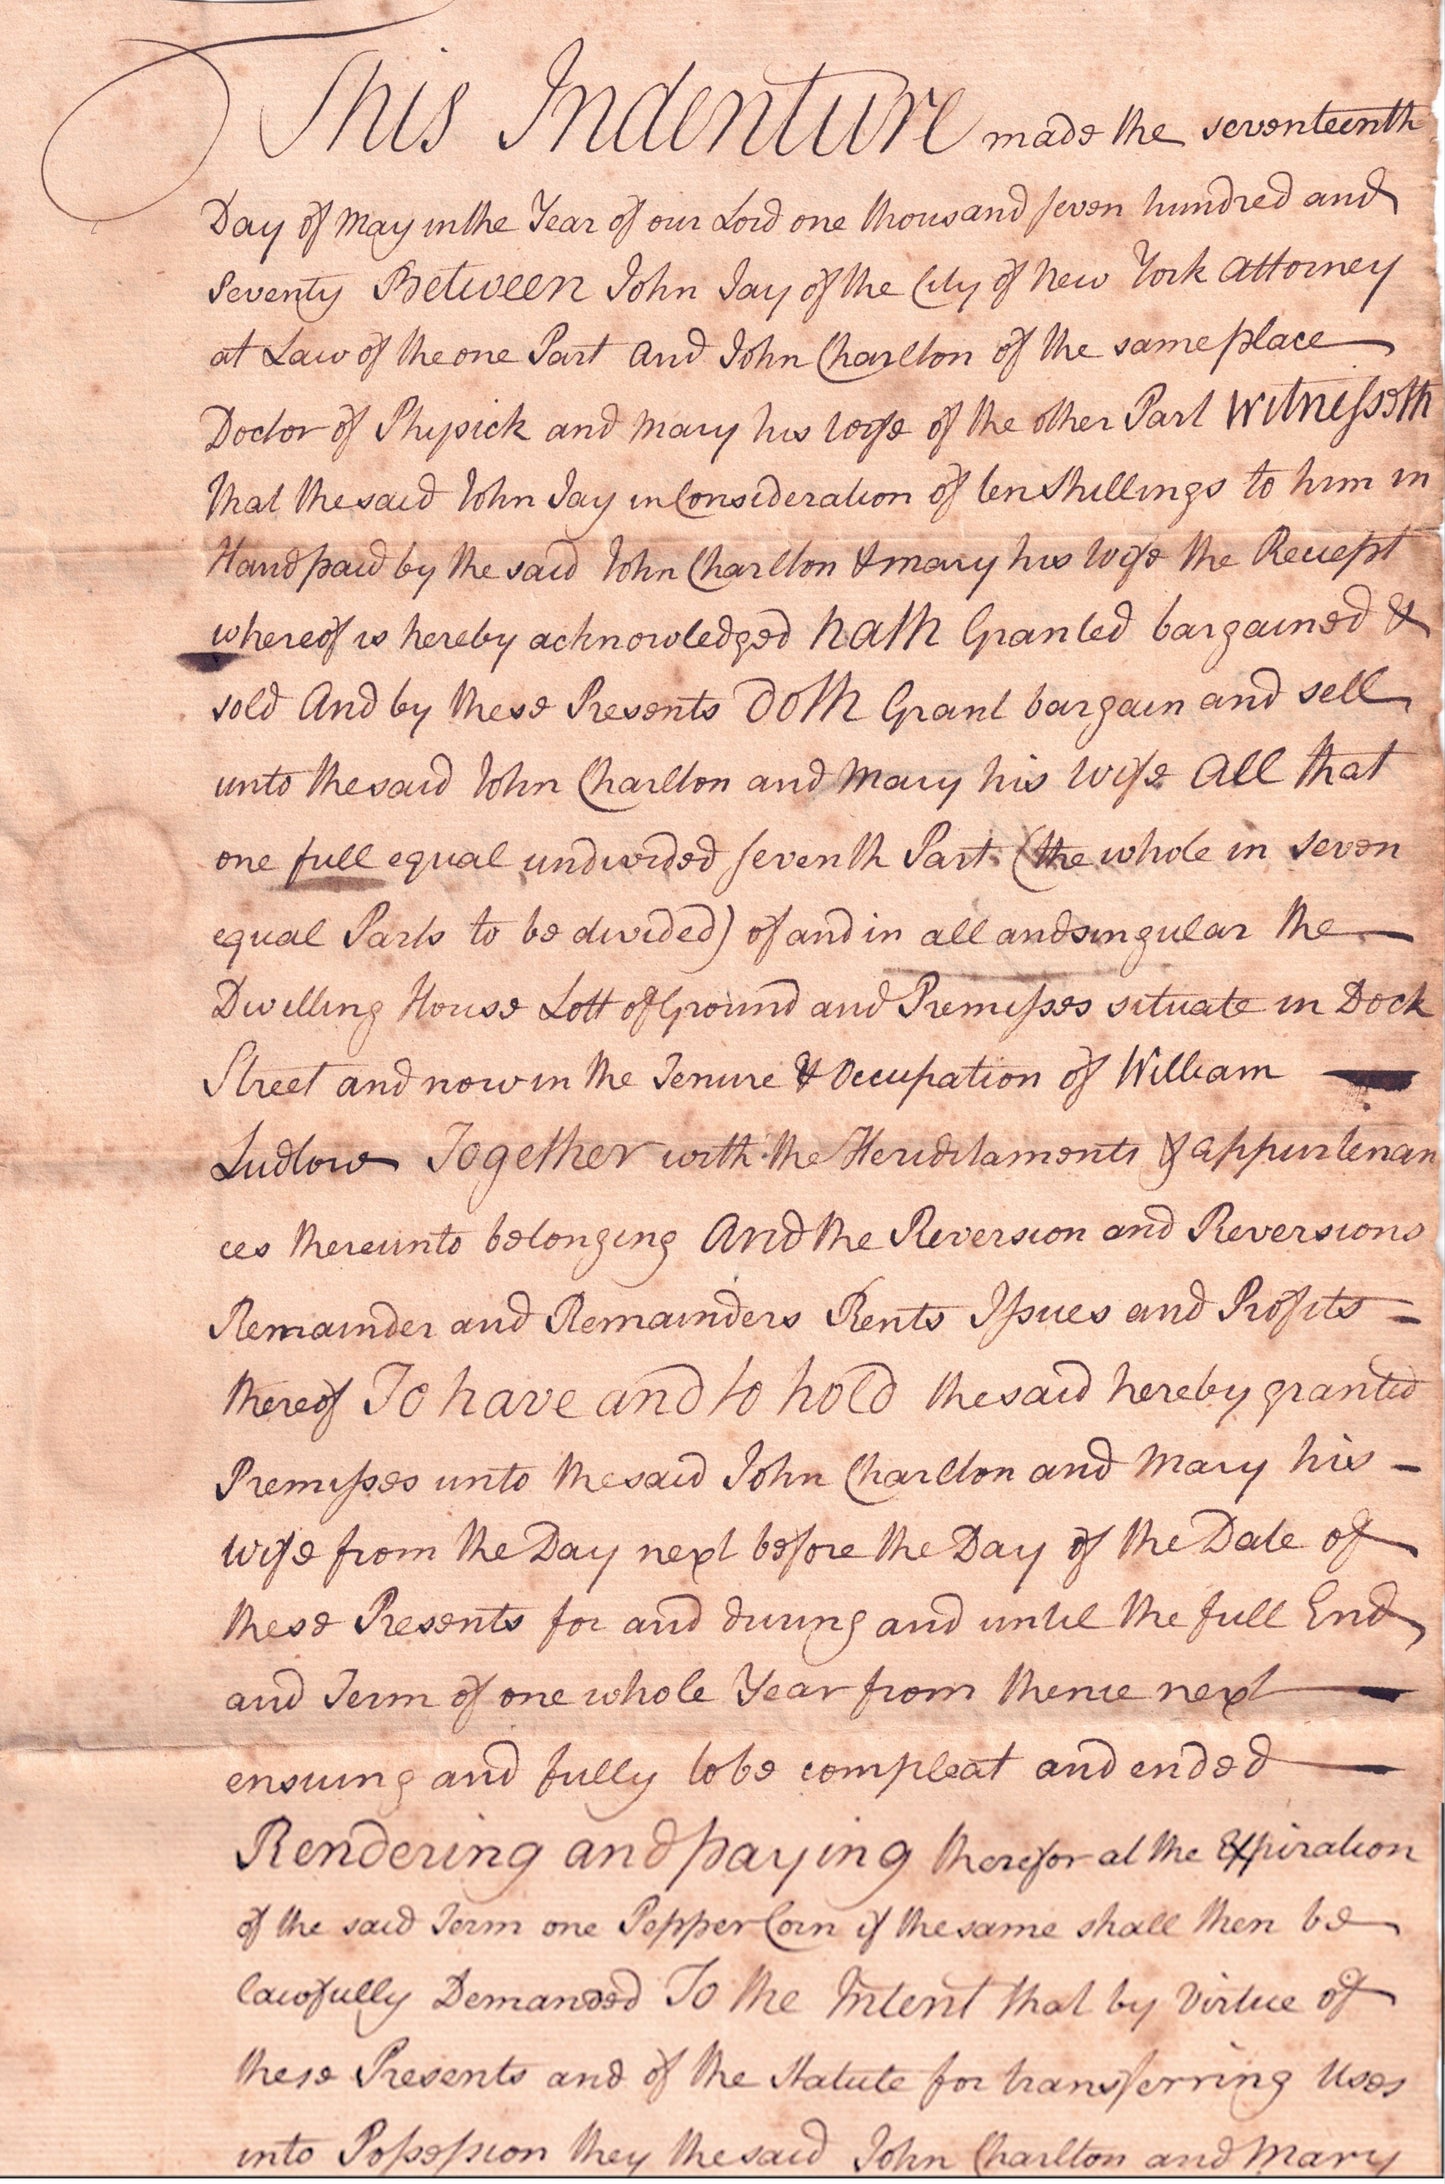 This Indenture made the seventeenth
Day of May in the Year of our Lord one thousand seven hundred and
seventy Between John Jay of the City of New York Attorney
at Law of the one Part and John Charlton of the same place
Doctor of Physick and Mary his wife of the other Part Witnesseth
that the said John Jay in Consideration of ten Shillings to him in
Hand paid by the said John Charlton & Mary his wife the Receipt
whereof is hereby acknowledged hath Granted bargained &
sold And by these Presents Doth Grant bargain and sell
unto the said John Charlton and Mary his wife All that
one full equal undivided seventh Part (the whole in seven
equal Parts to be divided) of and in all and singular the
Dwelling House Lott of Ground and Premisses situate in Dock
Street and now in the Tenure & Occupation of William
Ludlow Together with the Heriditaments & appurtenan
ces thereunto belonging And the Reversion and Reversions
Remainder and Remainders Rents Issues and Profits
thereof To have and to hold the said hereby granted
Premisses unto the said John Charlton and Mary his
wife from the Day next before the Day of the Date of
these Presents for and during and until the full End
and Term of one whole Year from thence next
ensuing and fully to be compleat and ended
Rendering and paying therefor at the Expiration
of the said Term one Pepper Corn if the same shall then be
lawfully Demanded To the Intent that by Virtue of
these Presents and of the Statute for transferring Uses
into Possession they the said John Charlton and Mary